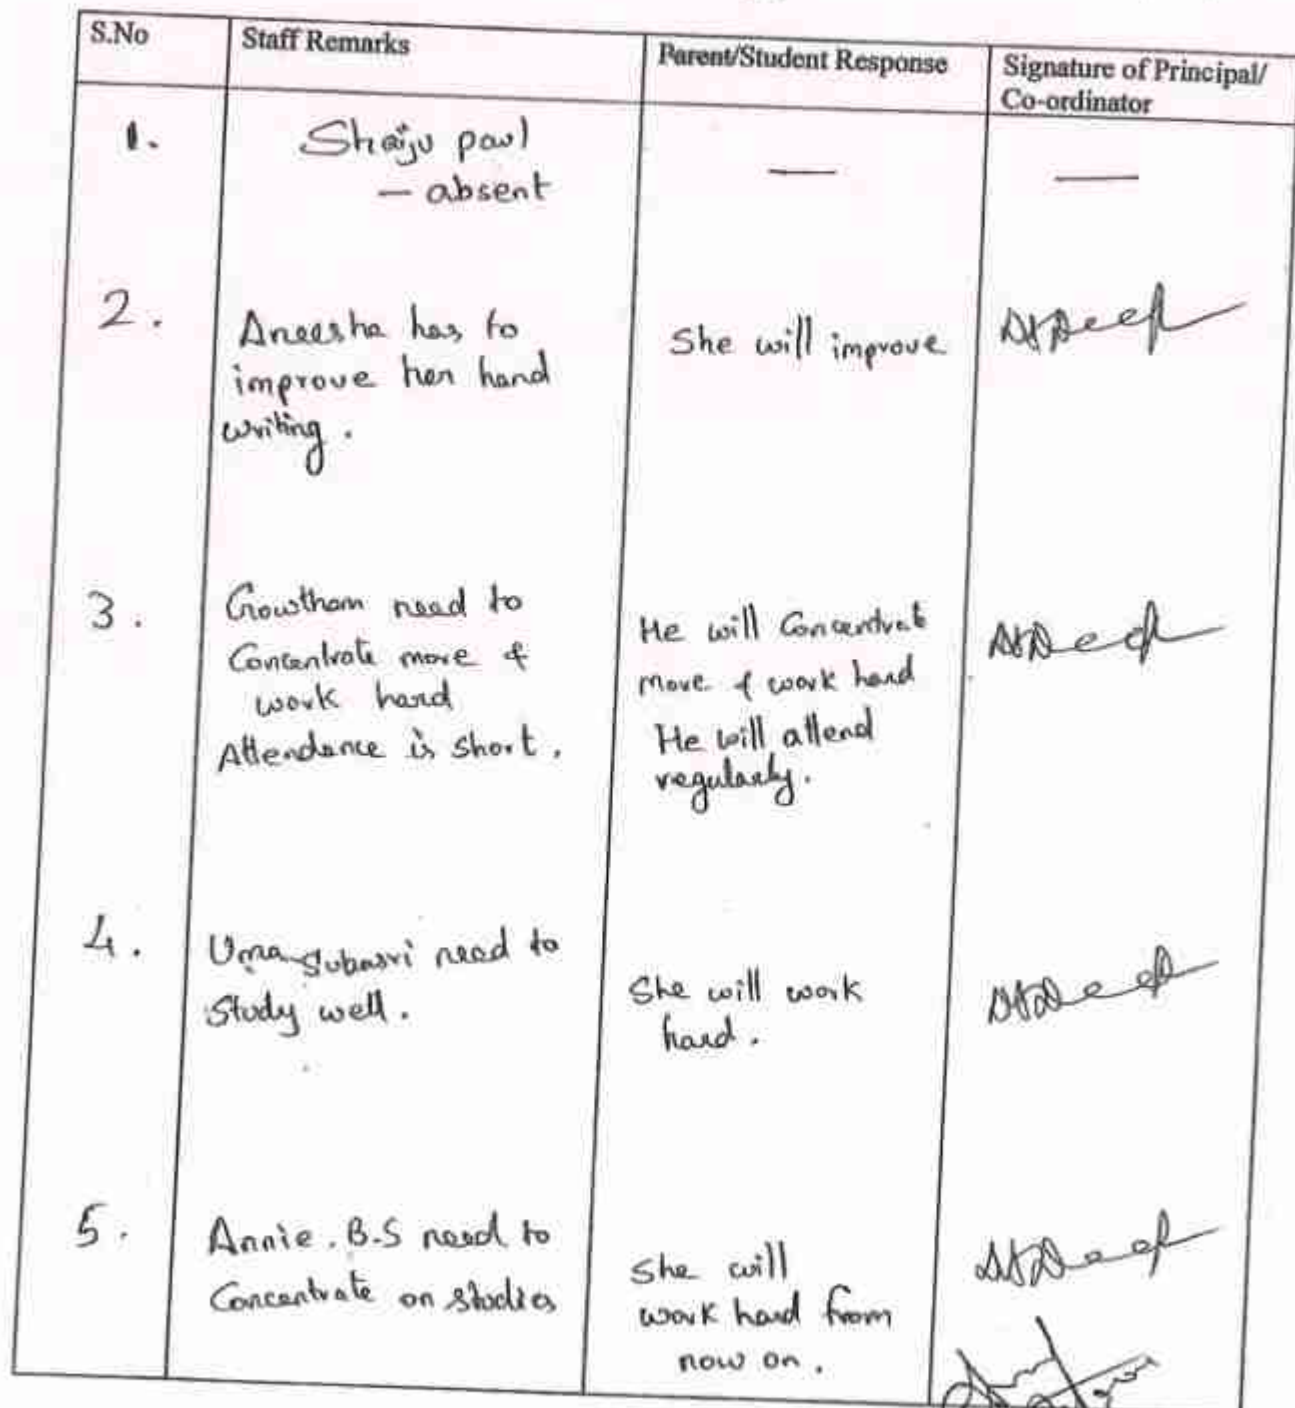 S.No Staff Remarks Parent/Student Response Signature of Principal/
Co-ordinator
1. Shaiju paul
— absent — —
2. Aneesha has to
improve her hand
writing.
She will improve
3. Gowtham need to
Concentrate more &
work hard
Attendance is short.
He will Concentrate
more & work hard
He will attend
regularly.
4. Uma Subasri need to
Study well.
She will work
hard.
5. Annie. B.S need to
Concentrate on studies
She will
work hard from
now on.